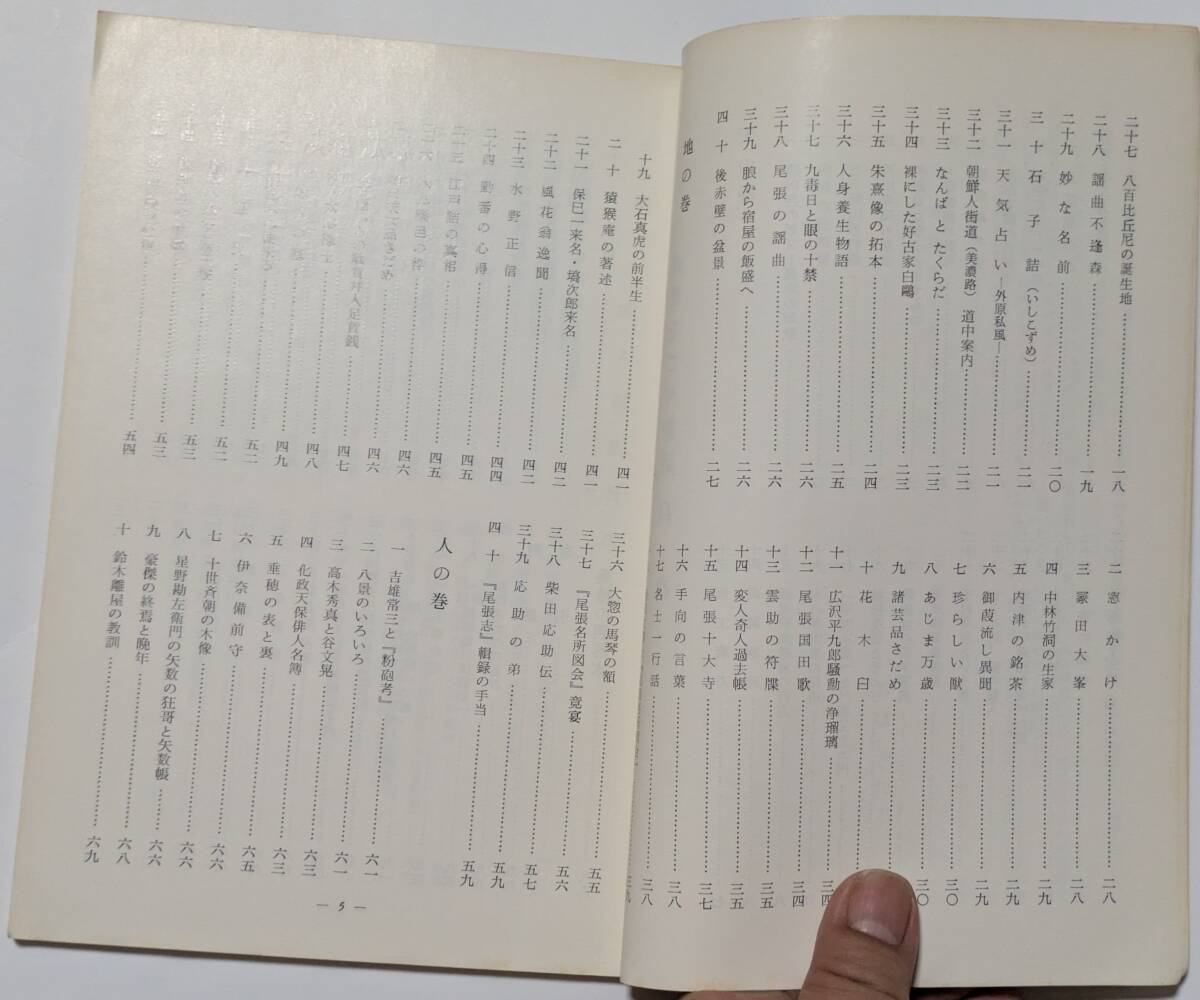 二十七 八百比丘尼の誕生地 一八
二十八 謡曲不逢森 一九
二十九 妙な名前 二〇
三十 石子詰（いしこずめ） 二一
三十一 天気占い―外原私風― 二一
三十二 朝鮮人街道（美濃路）道中案内 二二
三十三 なんばとたくらだ 二三
三十四 裸にした好古家白鷗 二三
三十五 朱熹像の拓本 二四
三十六 人身養生物語 二五
三十七 九毒日と眼の十禁 二六
三十八 尾張の謡曲 二六
三十九 娘から宿屋の飯盛へ 二六
四十 後赤壁の盆景 二七
地の巻
二 窓かけ 二八
三 冢田大峯 二八
四 中林竹洞の生家 二九
五 内津の銘茶 二九
六 御葭流し異聞 二九
七 珍らしい獣 三〇
八 あじま万歳 三〇
九 諸芸品さだめ
十 花木臼
十一 広沢平九郎騒動の浄瑠璃 三四
十二 尾張国田歌 三四
十三 雲助の符牒 三五
十四 変人奇人過去帳 三五
十五 尾張十大寺 三七
十六 手向の言葉 三八
十七 名士一行話 三八
三九
十九 大石真虎の前半生 四一
二十 猿猴庵の著述 四一
二十一 保巳一来名・塙次郎来名 四二
二十二 風花翁逸聞 四二
二十三 水野正信 四四
二十四 勤番の心得 四五
江戸詰の真相 四五
四六
四六
四七
四八
四九
五二
五二
五三
五四
三十六 大惣の馬琴の額 五五
三十七 『尾張名所図会』竟宴 五六
三十八 柴田応助伝 五七
三十九 応助の弟 五九
四十 『尾張志』輯録の手当 五九
人の巻
一 吉雄常三と『粉砲考』 六一
二 八景のいろいろ 六一
三 高木秀真と谷文晁 六三
四 化政天保俳人名簿 六三
五 垂穂の表と裏 六五
六 伊奈備前守 六六
七 十世斉朝の木像 六六
八 星野勘左衛門の矢数の狂哥と矢数帳 六六
九 豪傑の終焉と晩年 六八
十 鈴木離屋の教訓 六九
― 5 ―